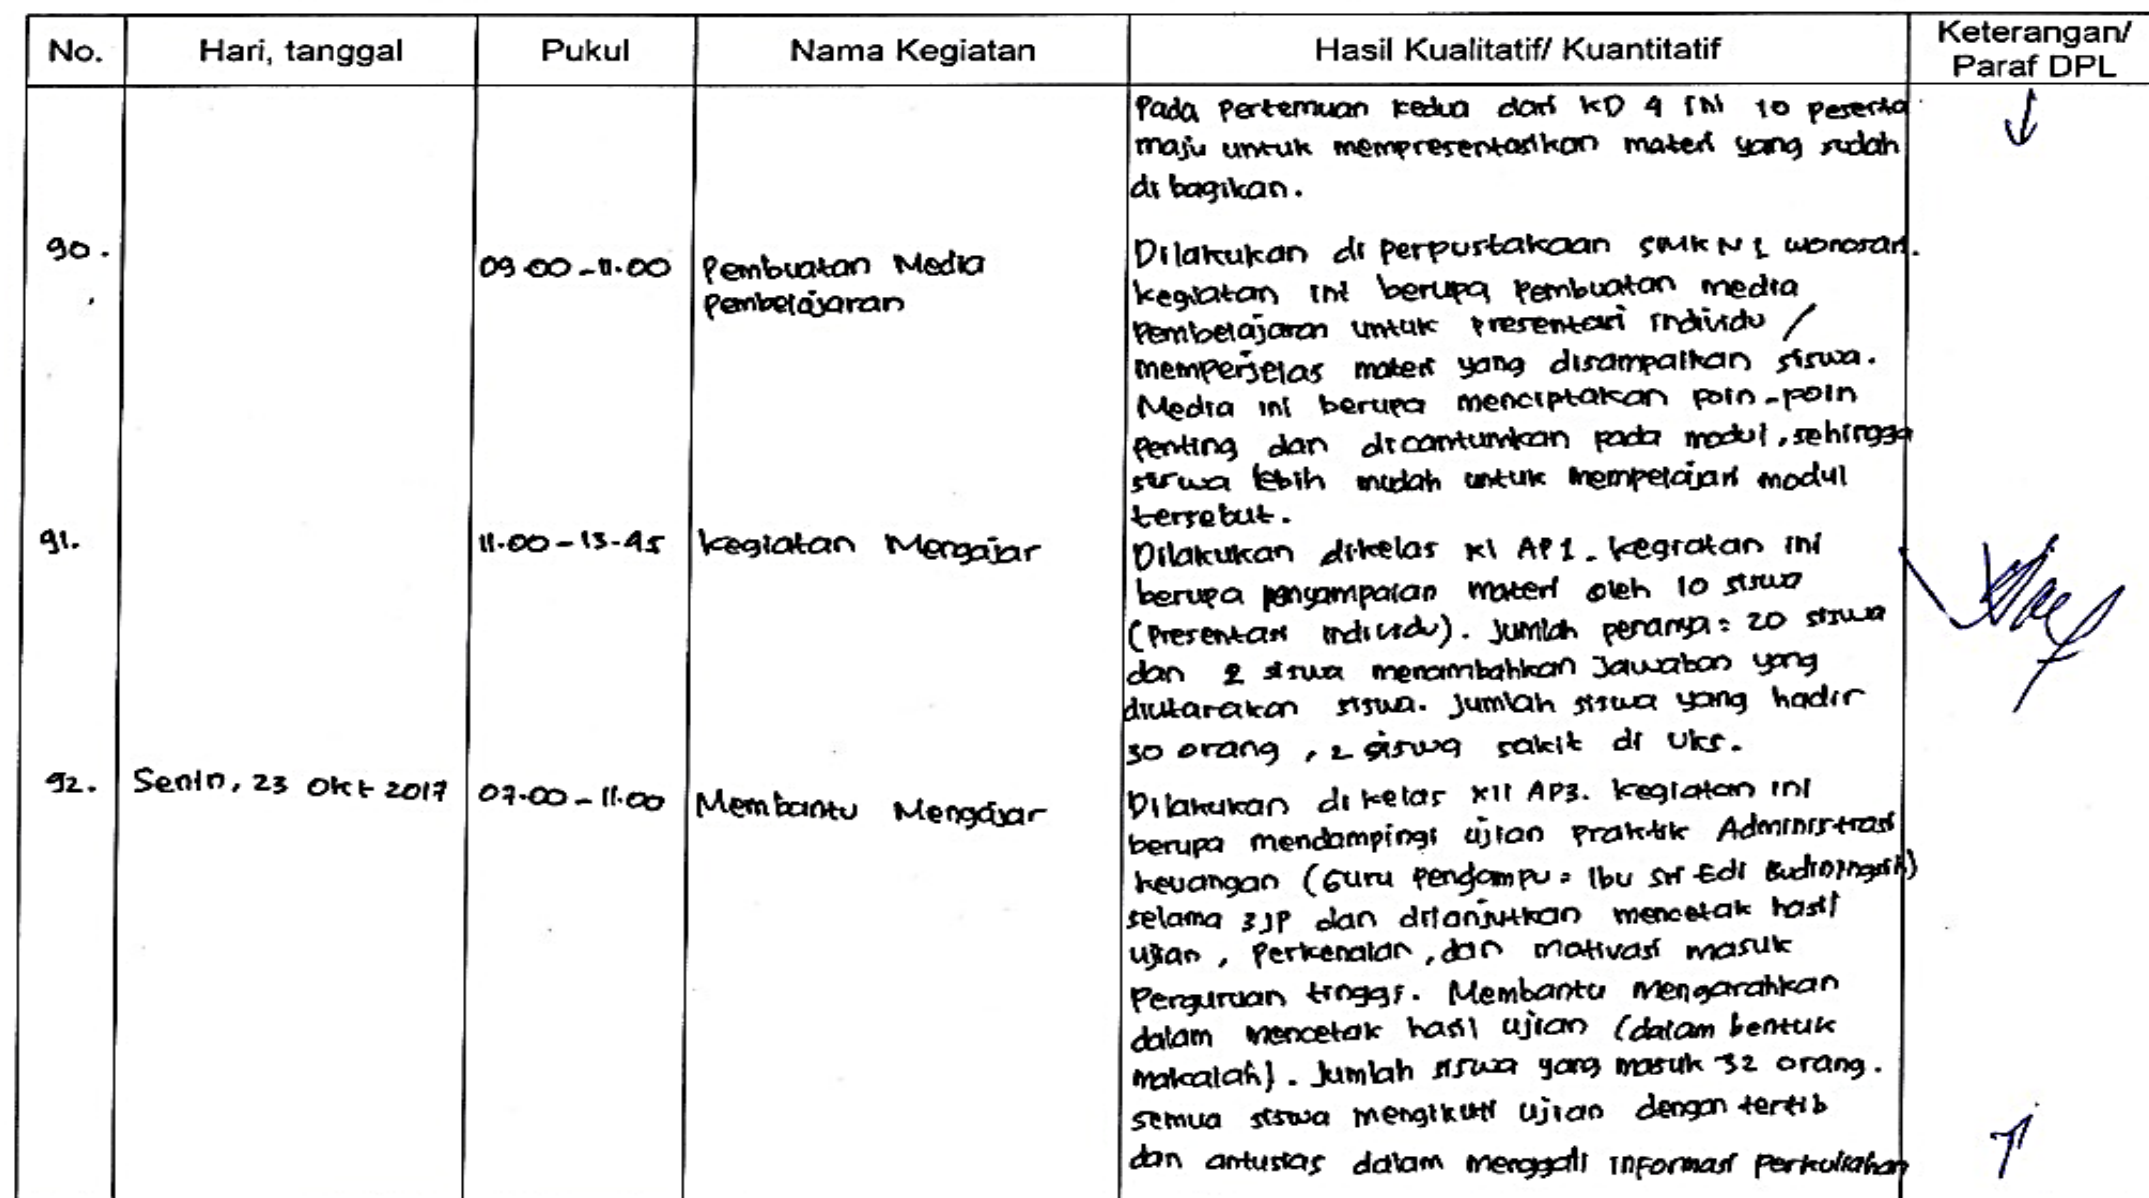 No. Hari, tanggal Pukul Nama Kegiatan Hasil Kualitatif/ Kuantitatif Keterangan/ Paraf DPL
Pada Pertemuan kedua dari KD 4 ini 10 peserta
maju untuk mempresentasikan materi yang sudah
di bagikan.
90. 09.00-11.00 Pembuatan Media
Pembelajaran
Dilakukan di perpustakaan SMK N 1 Wonosari.
kegiatan ini berupa pembuatan media
Pembelajaran untuk presentasi individu /
memperjelas materi yang disampaikan siswa.
Media ini berupa menciptakan poin-poin
Penting dan dicantumkan pada modul, sehingga
siswa lebih mudah untuk mempelajari modul
tersebut.
91. 11.00-13.45 kegiatan Mengajar
Dilakukan dikelas XI AP1. kegiatan ini
berupa penyampaian materi oleh 10 siswa
(Presentasi individu). Jumlah penanya: 20 siswa
dan 2 siswa menambahkan Jawaban yang
diutarakan siswa. Jumlah siswa yang hadir
30 orang, 2 siswa sakit di UKS.
92. Senin, 23 Okt 2017 07.00-11.00 Membantu Mengajar
Dilakukan di kelas XII AP3. kegiatan ini
berupa mendampingi ujian Praktik Administrasi
keuangan (Guru Pengampu: Ibu Sri Edi Budiningsih)
selama 3JP dan dilanjutkan mencetak hasil
ujian, Perkenalan, dan motivasi masuk
Perguruan tinggi. Membantu mengarahkan
dalam mencetak hasil ujian (dalam bentuk
makalah). Jumlah siswa yang masuk 32 orang.
semua siswa mengikuti ujian dengan tertib
dan antusias dalam menggali informasi Perkuliahan